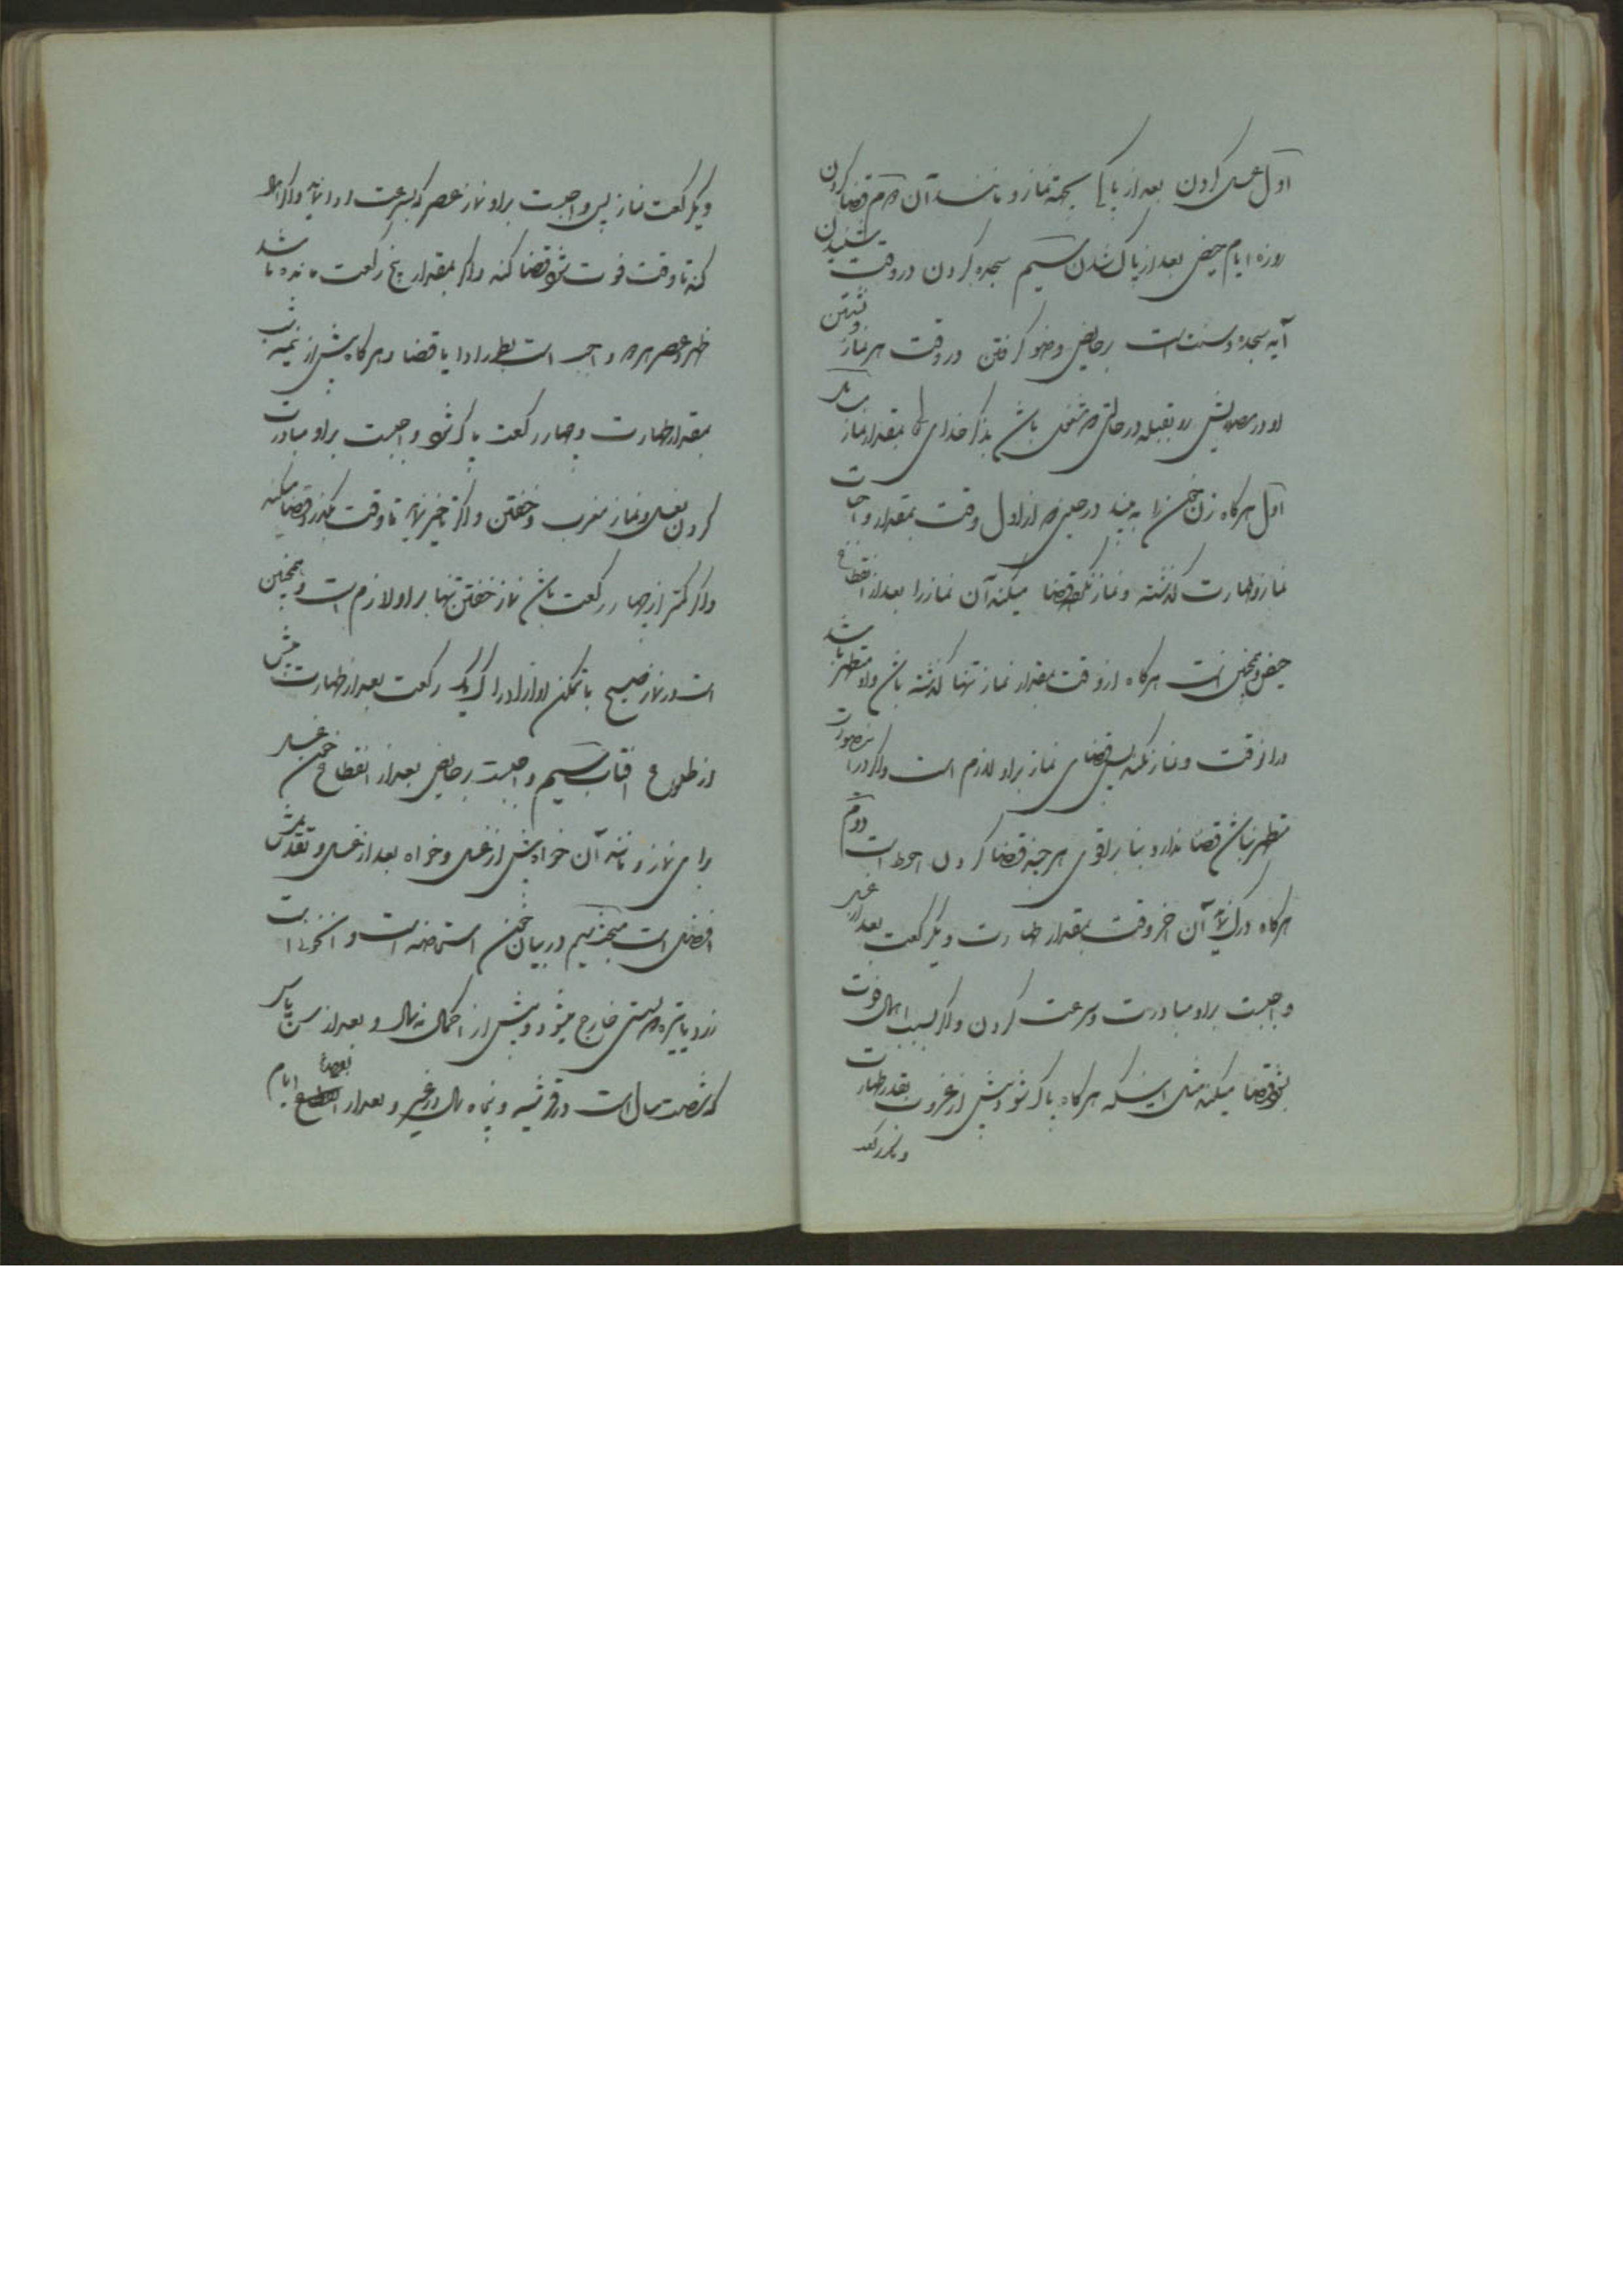 اول غسل کردن بعد از پاکی بجهة نماز و مانند آن دویم قضا کردن
روزه ایام حیض بعد از پاک شدن سیم سجده کردن در وقت شنیدن
آیه سجده و سنت است بر حایض وضو گرفتن در وقت هر نماز و نشستن
او در مصلایش رو بقبله در حالتی که مشغول باشد بذکر خدای بمقدار نماز
اول هرگاه زن خون را به بیند در حینی که از اول وقت بمقدار واجبات
نماز و طهارت گذشته و نماز نکرده قضا میکند آن نماز را بعد از انقطاع
حیض و همچنین است هرگاه از وقت بمقدار نماز تنها گذشته باشد و او متطهر باشد
در آنوقت و نماز نکند پس قضای نماز بر او لازم است و اگر در اینصورت
متطهر نباشد قضا ندارد بنا بر اقوی هر چند قضا کردن احوط است دوم
هرگاه درک نماید آن آخر وقت بمقدار طهارت و یکرکعت بعد از غسل
واجبست بر او مبادرت و سرعت کردن و اگر بسبب اهمال فوت
شود قضا میکند مثل اینکه هرگاه پاک شود پیش از غروب بقدر طهارت
و یکرکعت
و یکرکعت نماز پس واجبست بر او نماز عصر که بسرعت ادا نماید و اگر اهمال
کند تا وقت فوت شود قضا کند و اگر بمقدار پنج رکعت مانده باشد
ظهر و عصر هر دو واجب است بطور ادا یا قضا و هرگاه پیش از نیمه شب
بمقدار طهارت و چهار رکعت پاک شود واجبست بر او مبادرت
کردن بغسل و نماز مغرب و خفتن و اگر تاخیر نماید تا وقت بگذرد قضا میکند
و اگر کمتر از چهار رکعت باشد نماز خفتن تنها بر او لازم است و همچنین
است در نماز صبح با تمکن او از ادراک یک رکعت بعد از طهارت پیش
از طلوع افتاب سیم واجبست بر حایض بعد از انقطاع خون غسل
برای نماز و مانند آن خواه پیش از غسل و خواه بعد از غسل و تقدیمش
افضل است مبحث سیم در بیان خون استحاضه است و آن خونی است
زرد یا تیره که بسستی خارج میشود و پیش از اکمال نه سال و بعد از سن یاس
که شصت سال است در قرشیه و پنجاه سال در غیر و بعد از ایام